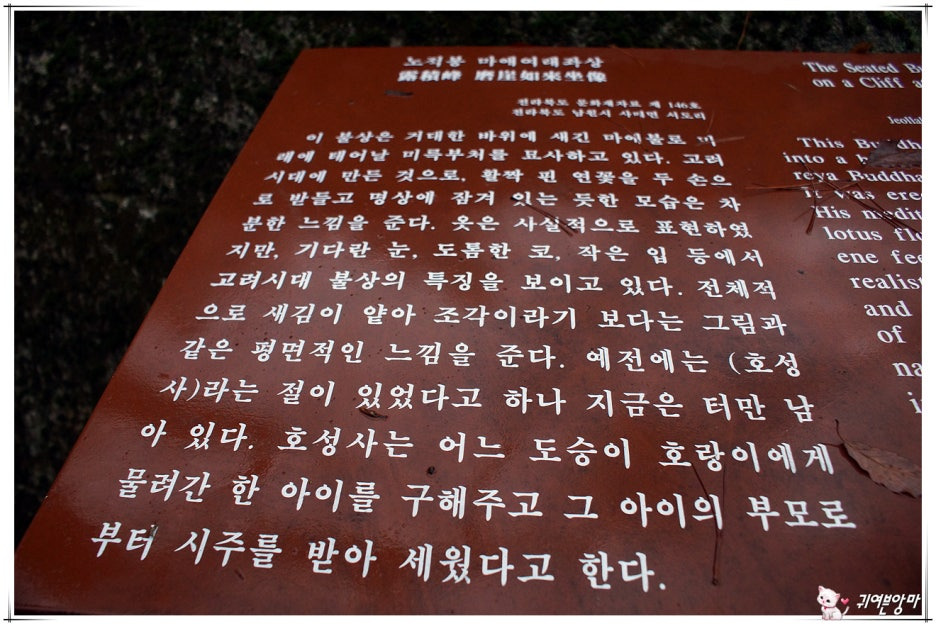 노적봉 마애여래좌상
露積峰 磨崖如來坐像
전라북도 문화재자료 제 146호
전라북도 남원시 사매면 서도리
이 불상은 거대한 바위에 새긴 마애불로 미
래에 태어날 미륵부처를 묘사하고 있다. 고려
시대에 만든 것으로, 활짝 핀 연꽃을 두 손으
로 받들고 명상에 잠겨 있는 듯한 모습은 차
분한 느낌을 준다. 옷은 사실적으로 표현하였
지만, 기다란 눈, 도톰한 코, 작은 입 등에서
고려시대 불상의 특징을 보이고 있다. 전체적
으로 새김이 얕아 조각이라기 보다는 그림과
같은 평면적인 느낌을 준다. 예전에는 (호성
사)라는 절이 있었다고 하나 지금은 터만 남
아 있다. 호성사는 어느 도승이 호랑이에게
물려간 한 아이를 구해주고 그 아이의 부모로
부터 시주를 받아 세웠다고 한다.
The Seated B
on a Cliff a
Jeolla
This Buddh
into a
reya Buddha
It was erec
His medit
lotus flo
ene fee
realist
and
of
na
i
귀여븐앙마